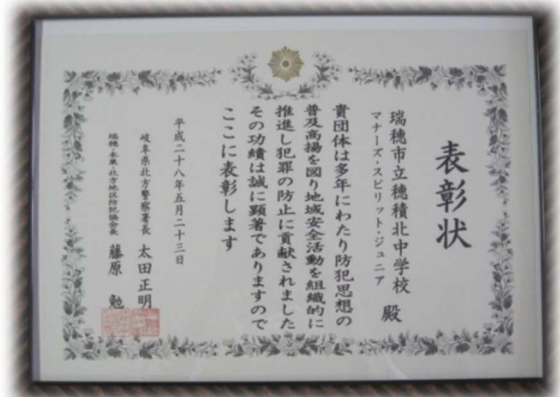 表彰状
瑞穂市立穂積北中学校
マナーズ・スピリット・ジュニア 殿
貴団体は多年にわたり防犯思想の
普及高揚を図り地域安全活動を組織的に
推進し犯罪の防止に貢献されました
その功績は誠に顕著でありますので
ここに表彰します
平成二十八年五月二十三日
岐阜県北方警察署長 太田正明
瑞穂・本巣・北方地区防犯協会長 藤原 勉